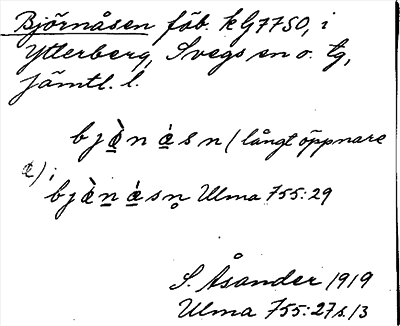 Björnåsen fäb. k G7750, i
Ytterberg, Svegs sn o. tg,
Jämtl. l.
bjæ̀n ǽsn (långt öppnare
æ);
bjæ̀n ǽsn̥ Ulma 755:29
S. Åsander 1919
Ulma 755:27 s. 13